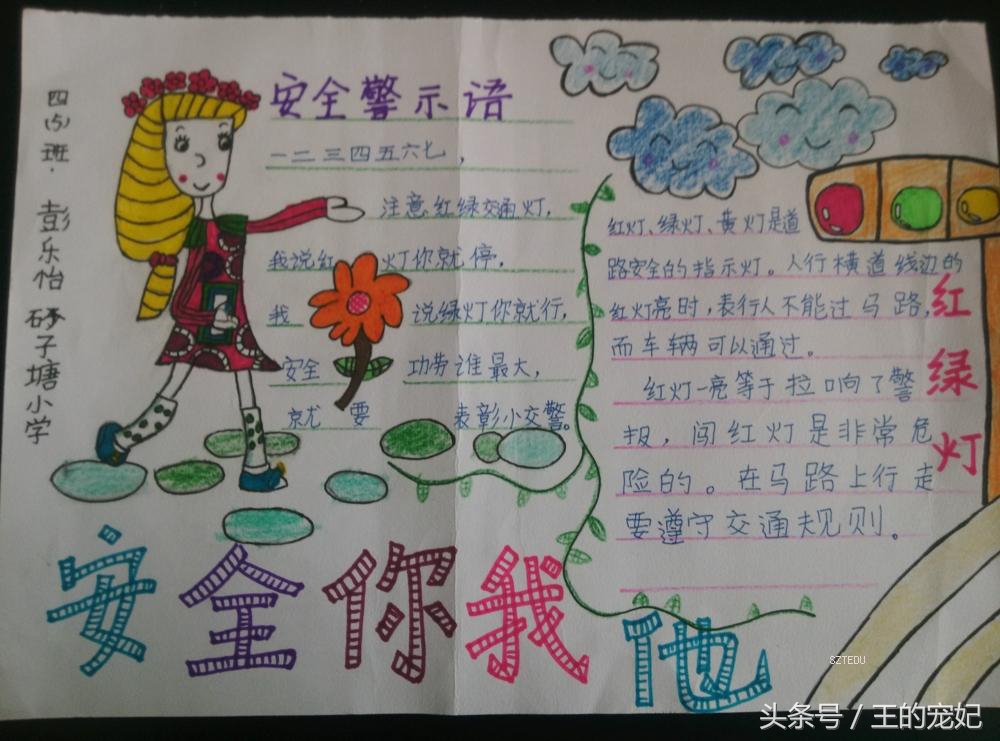 四(5)班.
彭乐怡 砂子塘小学
安全警示语
一二三四五六七，
注意红绿交通灯，
我说红灯你就停，
我说绿灯你就行，
安全功劳谁最大，
就要表彰小交警。
红灯、绿灯、黄灯是道
路安全的指示灯。人行横道线边的
红灯亮时，表行人不能过马路，
而车辆可以通过。
红灯一亮等于拉响了警
报，闯红灯是非常危
险的。在马路上行走
要遵守交通规则。
红绿灯
安全你我他
SZTEDU
头条号 / 王的宠妃